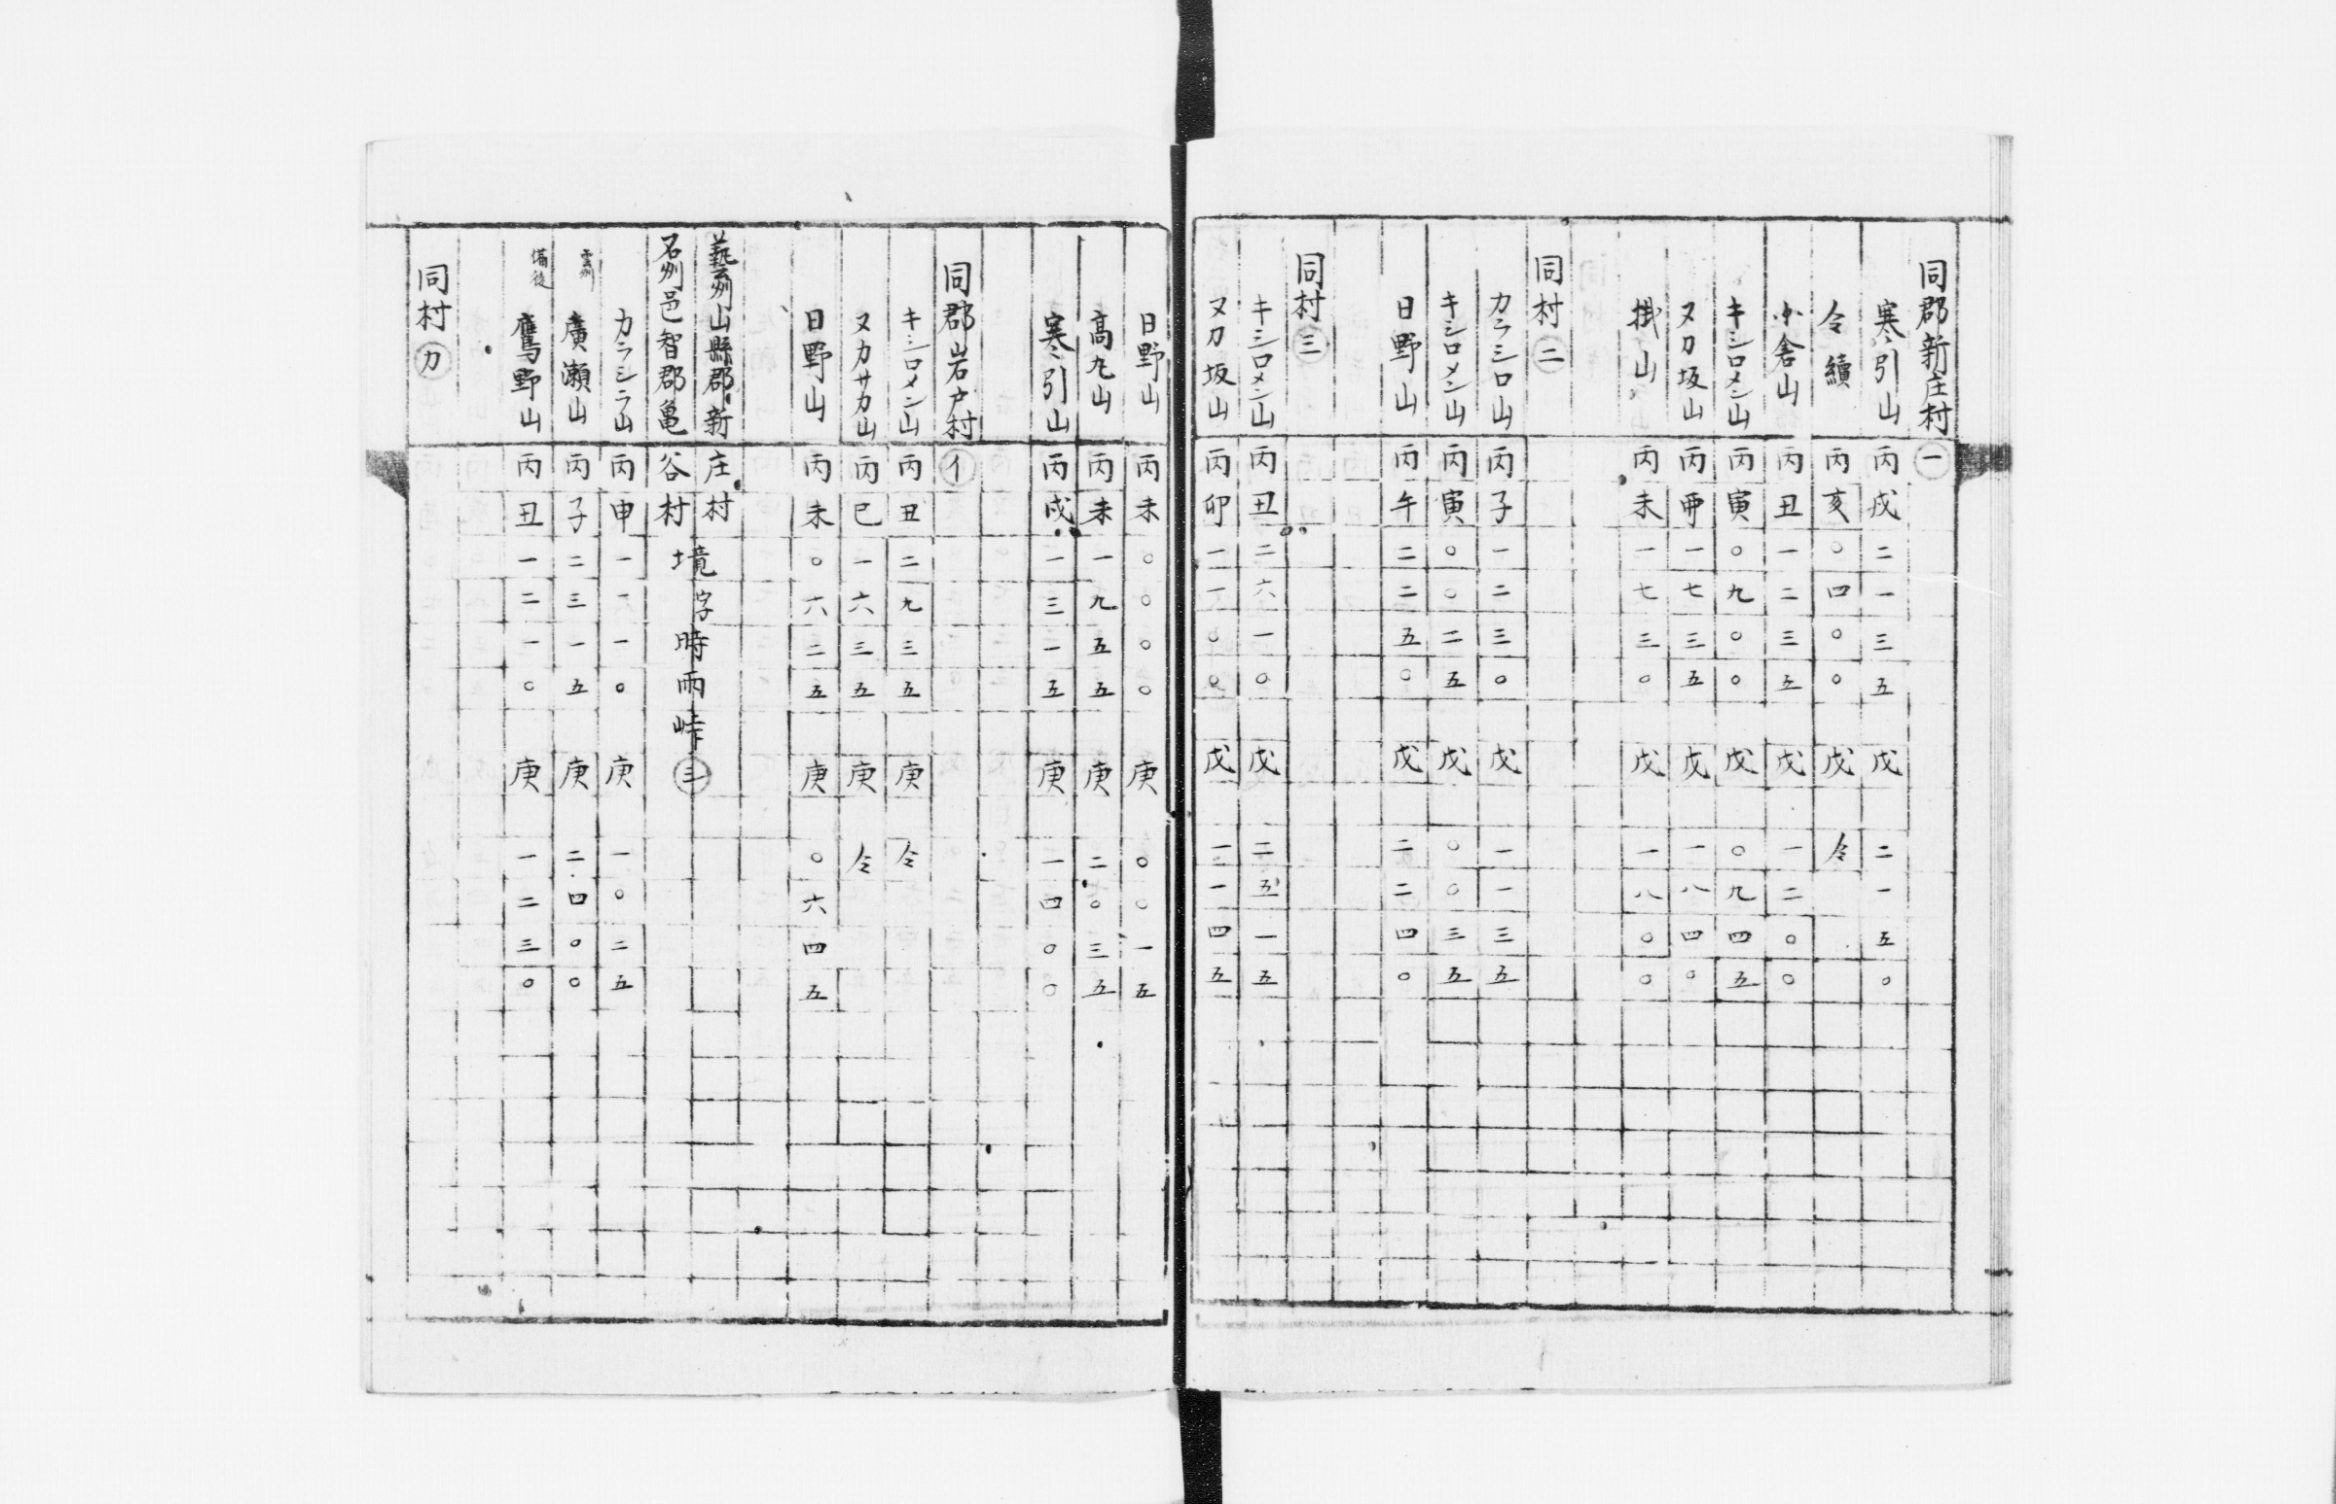 同郡新庄村㊀
寒引山 丙戌二一三五 戊 二一五〇
仝續 丙亥〇四〇〇 戊 仝
小倉山 丙丑一二三五 戊 一二〇〇
キシロメン山 丙寅〇九〇〇 戊 〇九四五
ヌカ坂山 丙卯一七三五 戊 一八四〇
掛山 丙未一七三〇 戊 一八〇〇
同村㊁
カラシロ山 丙子一二三〇 戊 一一三五
キシロメン山 丙寅〇〇二五 戊 〇〇三五
日野山 丙午二二五〇 戊 二二四〇
同村㊂
キシロメン山 丙丑二六一〇 戊 二五一五
ヌカ坂山 丙卯一一〇〇 戊 一一四五
日野山 丙未〇〇〇〇 庚 〇〇一五
高丸山 丙未一九五五 庚 二〇三五
寒引山 丙戌一三一五 庚 一四〇〇
同郡岩戸村㋑
キシロメン山 丙丑二九三五 庚 仝
ヌカサカ山 丙巳一六三五 庚 仝
日野山 丙未〇六二五 庚 〇六四五
藝州山縣郡新庄村
石州邑智郡亀谷村
境字時雨峠㊂
カラシラ山 丙申一一一〇 庚 一〇二五
雲州 廣瀬山 丙子二三一五 庚 二四〇〇
備後 鷹野山 丙丑一二一〇 庚 一二三〇
同村㋕